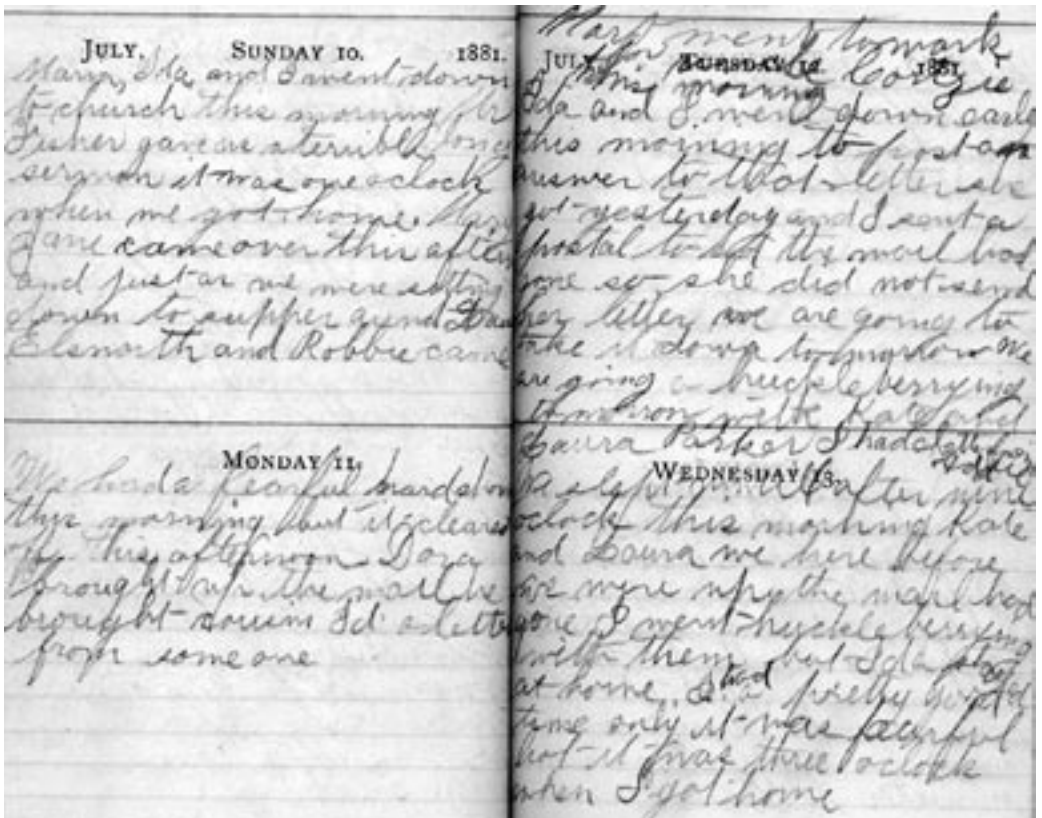 JULY. SUNDAY 10. 1881.
Maria, Ida and I went down
to church this morning Mr
Fisher gave us a terrible long
sermon it was one oclock
when we got home. Mary
Jane came over this after
and just as we were sitting
down to supper and
Elsworth and Robbie came
MONDAY 11.
We had a fearful hard storm
this morning but it cleared
off this afternoon Dora
brought up the mail he
brought cousin Id a letter
from some one
Mary went to work
for
JULY. TUESDAY 12. 1881
this morning
Ida and I went down early
this morning to post an
answer to that letter she
got yesterday and I sent a
postal to the mail had
gone so she did not send
her letter we are going to
take it down tomorrow We
are going a huckleberrying
tomorrow with Kate and
Laura Parker I had a letter from
WEDNESDAY 13.
We slept until after nine
oclock this morning Kate
and Laura we here before
we were up the mail had
gone I went huckleberrying
with them but Ida staid
at home. I had a pretty good
time only it was fearful
hot it was three oclock
when I got home